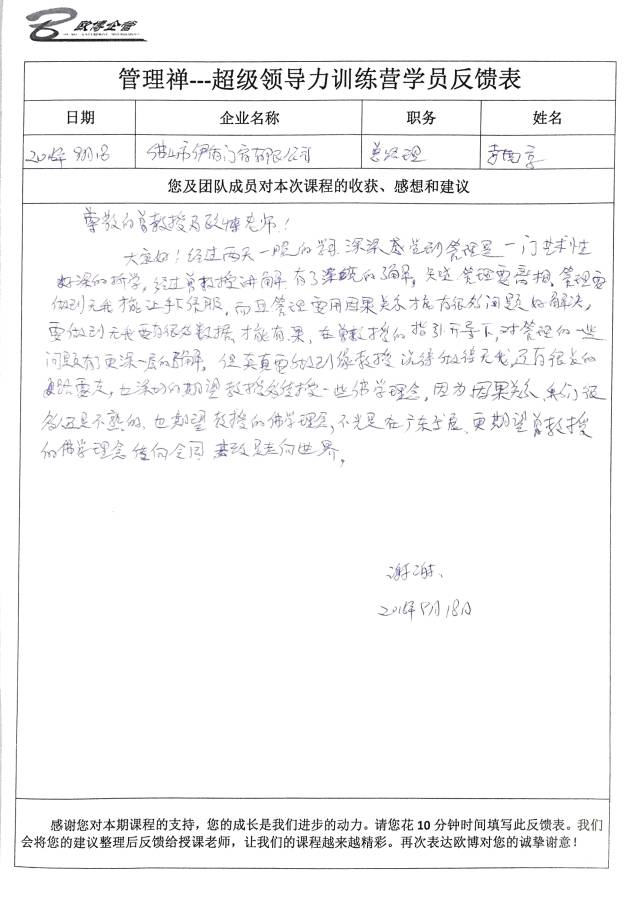 欧博企管
管理禅---超级领导力训练营学员反馈表
日期 企业名称 职务 姓名
佛山市伊 门窗有限公司 总经理
您及团队成员对本次课程的收获、感想和建议
尊敬的曾教授及欧博老师！
大家好！经过两天一晚的 深深感觉到管理是一门艺术性
好深的哲学，经过曾教授讲解 有了深 的 解，知道管理要 相，管理要
做到无我才能让手下佩服，而且管理要用因果关系才能有很多问题的解决，
要做到无我要有很多数据，才能有果，在曾教授的指引开导下，对管理的一些
问题有更深一层的 解，但真真要做到像教授 无我，还有很长的
路要走，也深切的期望教授多传授一些佛学理念，因为因果关系，我们很
多还是不熟的，也期望教授的佛学理念，不光是在广东发展，更期望曾教授
的佛学理念传向全国 甚致是走向世界。
谢谢、
8月18日
感谢您对本期课程的支持，您的成长是我们进步的动力。请您花 10 分钟时间填写此反馈表。我们
会将您的建议整理后反馈给授课老师，让我们的课程越来越精彩。再次表达欧博对您的诚挚谢意！